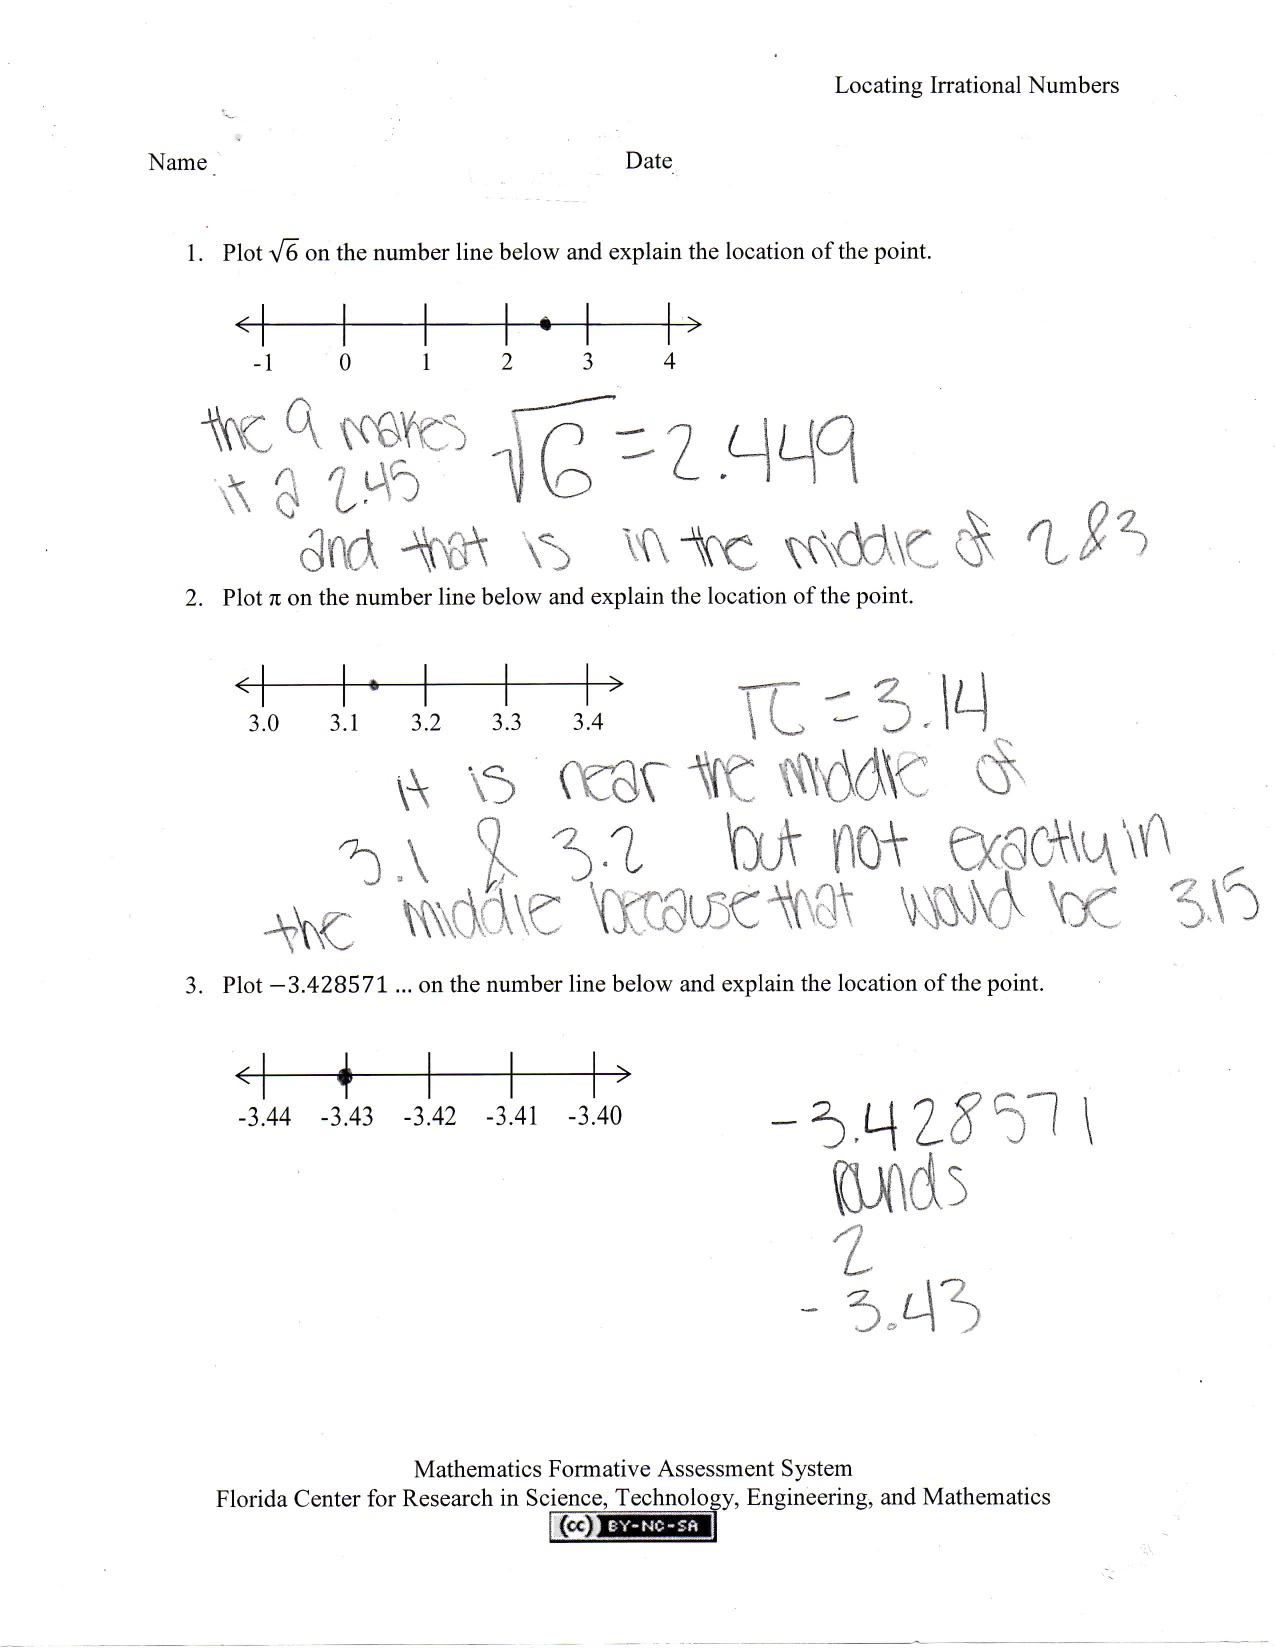 Locating Irrational Numbers
Name Date
1. Plot √6 on the number line below and explain the location of the point.
-1 0 1 2 3 4
the 9 makes √6 = 2.449
it a 2.45
and that is in the middle of 2 & 3
2. Plot π on the number line below and explain the location of the point.
3.0 3.1 3.2 3.3 3.4
π = 3.14
it is near the middle of
3.1 & 3.2 but not exactly in
the middle because that would be 3.15
3. Plot −3.428571 ... on the number line below and explain the location of the point.
-3.44 -3.43 -3.42 -3.41 -3.40
-3.428571
rounds
2
-3.43
Mathematics Formative Assessment System
Florida Center for Research in Science, Technology, Engineering, and Mathematics
(cc) BY-NC-SA